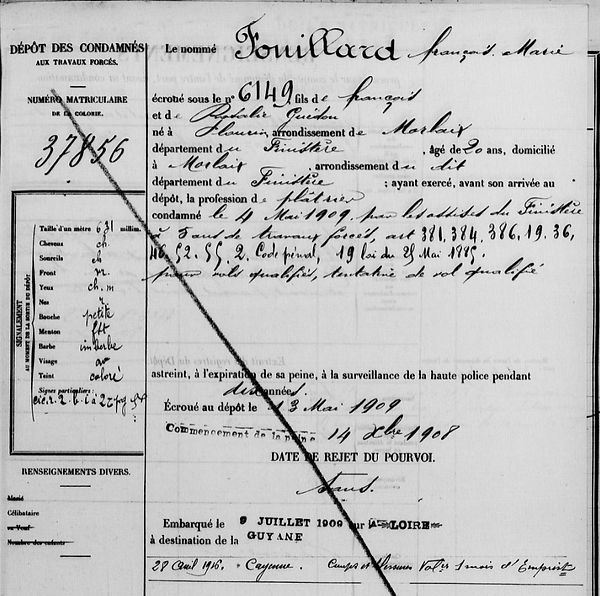 DÉPÔT DES CONDAMNÉS
AUX TRAVAUX FORCÉS.
NUMÉRO MATRICULAIRE
DE LA COLONIE.
37856
SIGNALEMENT
AU MOMENT DE LA SORTIE DU DÉPÔT
Taille d'un mètre 631 millim.
Cheveux ch
Sourcils ch
Front m.
Yeux ch. m
Nez
Bouche petite
Menton
Barbe imberbe
Visage ov
Teint coloré
Signes particuliers :
RENSEIGNEMENTS DIVERS.
Marié
Célibataire
ou Veuf
Nombre des enfants
Le nommé Fouillard françois Marie
écroué sous le n° 6149, fils de françois
et de Rosalie Guédon
né à Plourin, arrondissement de Morlaix
département du Finistère, âgé de 20 ans, domicilié
à Morlaix, arrondissement du dit
département du Finistère ; ayant exercé, avant son arrivée au
dépôt, la profession de plâtrier
condamné le 4 Mai 1909, par les assises du Finistère
à 5 ans de travaux forcés, art 381, 384, 386, 19. 36,
46, 52. 55, 2. Code pénal, 19 loi du 27 Mai 1885
pour vols qualifiés, tentative de vol qualifié
astreint, à l'expiration de sa peine, à la surveillance de la haute police pendant
dix années.
Écroué au dépôt le 13 Mai 1909
Commencement de la peine 14 Xbre 1908
DATE DE REJET DU POURVOI.
Sans.
Embarqué le 9 JUILLET 1909 sur La LOIRE
à destination de la GUYANE
28 Avril 1916. Cayenne. 1 mois d'Emprist